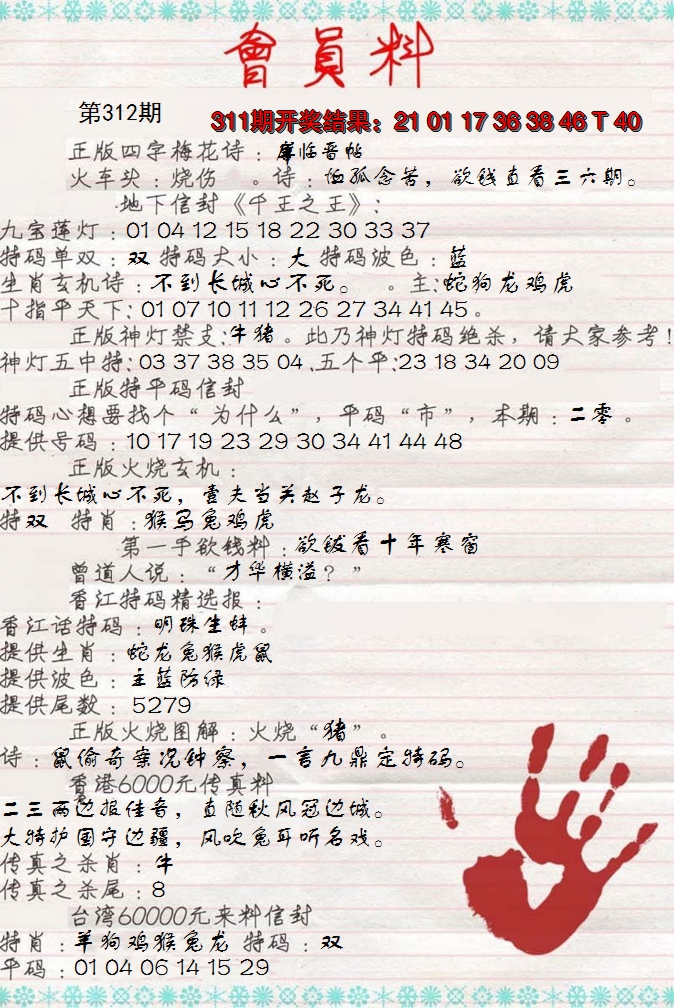 會員料
第312期
311期开奖结果：21 01 17 36 38 46 T 40
正版四字梅花诗：摩临晋帖
火车头：烧伤 。诗：怕孤念苦，欲钱直看三六期。
地下信封《千王之王》：
九宝莲灯：01 04 12 15 18 22 30 33 37
特码单双：双 特码大小：大 特码波色：蓝
生肖玄机诗：不到长城心不死。 。主：蛇狗龙鸡虎
十指平天下：01 07 10 11 12 26 27 34 41 45。
正版神灯禁支：牛猪。此乃神灯特码绝杀，请大家参考！
神灯五中特：03 37 38 35 04 .五个平：23 18 34 20 09
正版特平码信封
特码心想要找个“为什么”，平码“市”，本期：二零。
提供号码：10 17 19 23 29 30 34 41 44 48
正版火烧玄机：
不到长城心不死，壹夫当关赵子龙。
特双 特肖：猴马兔鸡虎
第一手欲钱料：欲钱看十年寒窗
曾道人说：“才华横溢？”
香江特码精选报：
香江话特码：明珠生蚌。
提供生肖：蛇龙兔猴虎鼠
提供波色：主蓝防绿
提供尾数：5279
正版火烧图解：火烧“猪”。
诗：鼠偷奇案况钟察，一言九鼎定特码。
香港6000元传真料
二三两边报佳音，直随秋风冠边城。
大特护国守边疆，风吹兔耳听名戏。
传真之杀肖：牛
传真之杀尾：8
台湾60000元来料信封
特肖：羊狗鸡猴兔龙 特码：双
平码：01 04 06 14 15 29